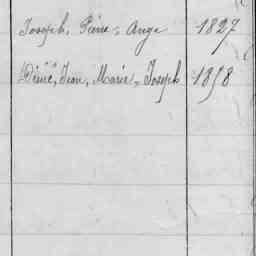 Joseph, Pierre, Ange 1827
René, Jean, Marie, Joseph 1858